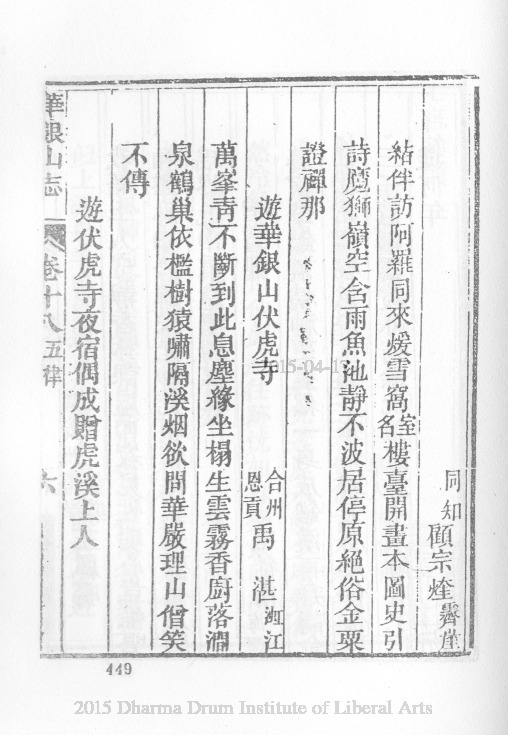 同知顧宗煃霽崖
結伴訪阿羅同來煖雪窩室名樓臺開畫本圖史引
詩魔獅嶺空含雨魚池靜不波居停原絕俗金粟
證禪那
遊華銀山伏虎寺 合州恩貢禹湛湘江
萬峯青不斷到此息塵緣坐榻生雲霧香廚落澗
泉鶴巢依檻樹猿嘯隔溪烟欲問華嚴理山僧笑
不傳
遊伏虎寺夜宿偶成贈虎溪上人
華銀山志 卷十八 五律 六
449
2015-04-1
2015 Dharma Drum Institute of Liberal Arts